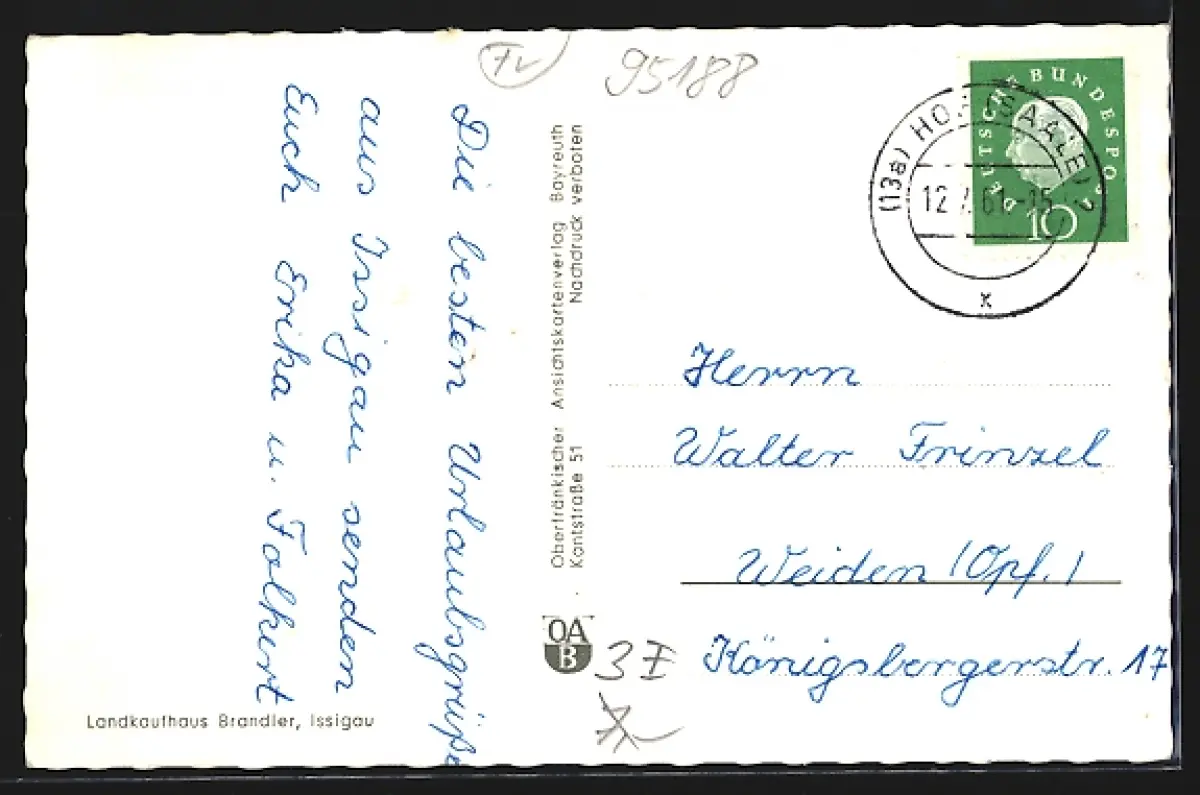 Die besten Urlaubsgrüße
aus Issigau senden
Euch Erika u. Folkert
Landkaufhaus Brandler, Issigau
Oberfränkischer Ansichtskartenverlag Bayreuth
Kantstraße 51 Nachdruck verboten
OA
B
95188
3
DEUTSCHE BUNDESPO
10
(13a) (SAALE) 2
12 61-15
x
Herrn
Walter Frinzel
Weiden (Opf.)
Königsbergerstr. 17